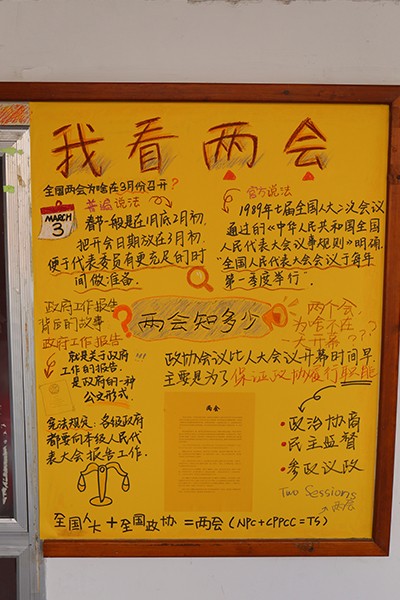 我看两会
全国两会为啥在3月份召开?
普遍说法
MARCH
3
春节一般是在1月底2月初,
把开会日期放在3月初,
便于代表委员有更充足的时
间做准备。
官方说法
1989年七届全国人大二次会议
通过的《中华人民共和国全国
人民代表大会议事规则》明确,
"全国人民代表大会会议于每年
第一季度举行"。
政府工作报告
背后的故事
政府工作报告
就是关于政府
工作的报告,
是政府的一种
公文形式
?两会知多少
两个会,
为啥不在
一天开幕???
政协会议比人大会议开幕时间早,
主要是为了保证政协履行职能
宪法规定:各级政府
都要向本级人民代
表大会报告工作。
两会
•政治协商
•民主监督
•参政议政
Two Sessions
→两会
全国人大+全国政协=两会(NPC+CPPCC=TS)